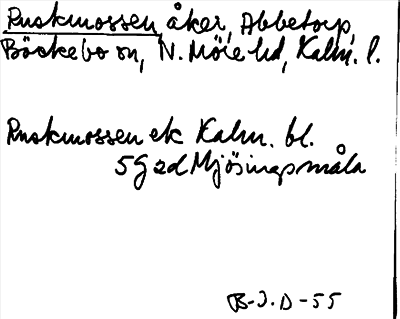 Ruskmossen, åker, Abbetorp,
Bäckebo sn, N. Möre hd, Kalm. l.
Ruskmossen ek Kalm. bl.
5G 2d Mjösingsmåla
B-J.D-55